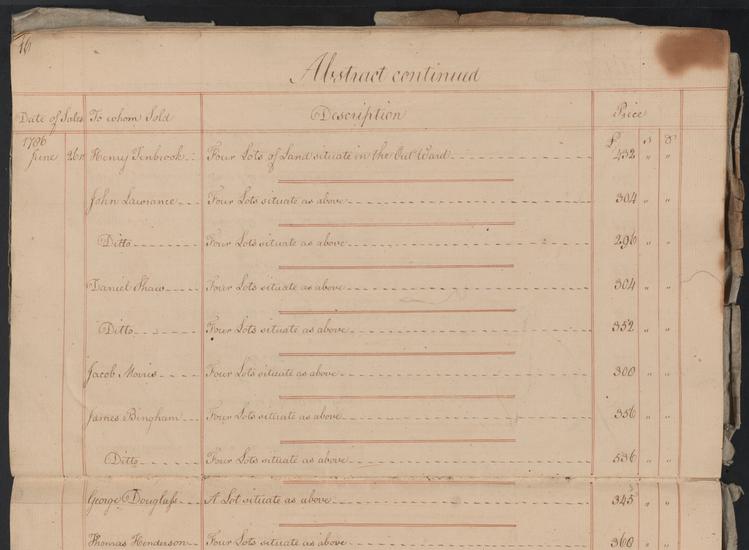 16
Abstract continued
Date of Sales To whom Sold Description Price
1786 £ s d
June 26th Henry Tenbrook Four Lots of Land situate in the Out Ward 432 " "
John Lawrance Four Lots situate as above 304 " "
Ditto Four Lots situate as above 296 " "
Daniel Shaw Four Lots situate as above 304 " "
Ditto Four Lots situate as above 352 " "
Jacob Morris Four Lots situate as above 300 " "
James Bingham Four Lots situate as above 356 " "
Ditto Four Lots situate as above 536 " "
George Douglass A Lot situate as above 345 " "
Thomas Henderson Four Lots situate as above 360 " "